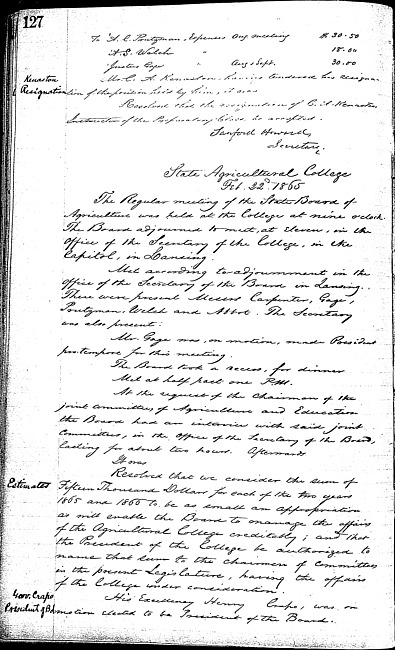 127
To A. C. Prutzman, Expenses Aug meeting $30.50
A. S. Welch " 18.00
Justus Gage " Aug & Sept. 30.00
Kenaston Mr. C. A. Kenaston, having tendered his resigna-
Resignation tion of the position held by him, it was
Resolved that the resignation of C. A. Kenaston
Instructor of the Preparatory Class be accepted.
Sanford Howard,
Secretary.
State Agricultural College
Feb. 22. 1865
The Regular meeting of the State Board of
Agriculture was held at the College at nine o'clock.
The Board adjourned to meet, at eleven, in the
office of the Secretary of the College, in the
Capitol, in Lansing.
Met according to adjournment in the
office of the Secretary of the Board in Lansing.
There were present Messrs Carpenter, Gage,
Prutzman, Welch and Abbot. The Secretary
was also present.
Mr. Gage was, on motion, made President
pro. tempore for this meeting.
The Board took a recess, for dinner
Met at half past one P.M.
At the request of the Chairman of the
joint committees of Agriculture and Education
the Board had an interview with said joint
Committees, in the office of the Secretary of the Board,
lasting for about two hours. Afterwards
It was
Resolved that we consider the sum of
Estimates Fifteen Thousand Dollars for each of the two years
1865 and 1866 to be as small an appropriation
as will enable the Board to manage the affairs
of the Agricultural College creditably; and that
the President of the College be authorized to
name that sum to the Chairmen of Committees
in the present Legislature, having the affairs
of the College under consideration.
Gov. Crapo His Excellency Henry Crapo, was, on
President of Bd motion elected to be President of the Board.